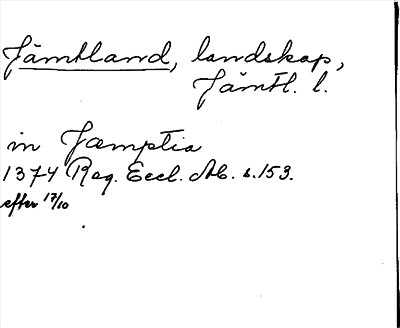 Jämtland, landskap,
Jämtl. l.
in Jæmptia
1374 Reg. Eccl. Ab. s. 153.
efter 17/10